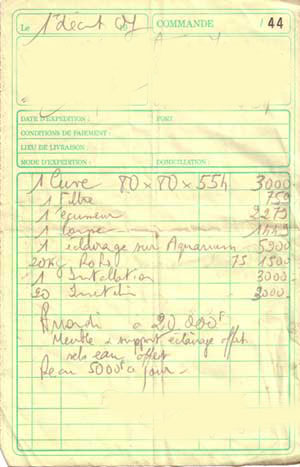 Le 1er décembre COMMANDE / 44
DATE D'EXPEDITION : PORT :
CONDITIONS DE PAIEMENT :
LIEU DE LIVRAISON :
MODE D'EXPEDITION : DOMICILIATION :
1 Cuve 80 x 80 x 55h 3000
1 Filtre 750
1 écumeur 2279
1 1449
1 éclairage sur Aquarium 5900
20Kg 75 1500
1 Installation 3000
20 3000
a 20 000F
Meuble support éclairage offert
sels eau offert
5000F jour